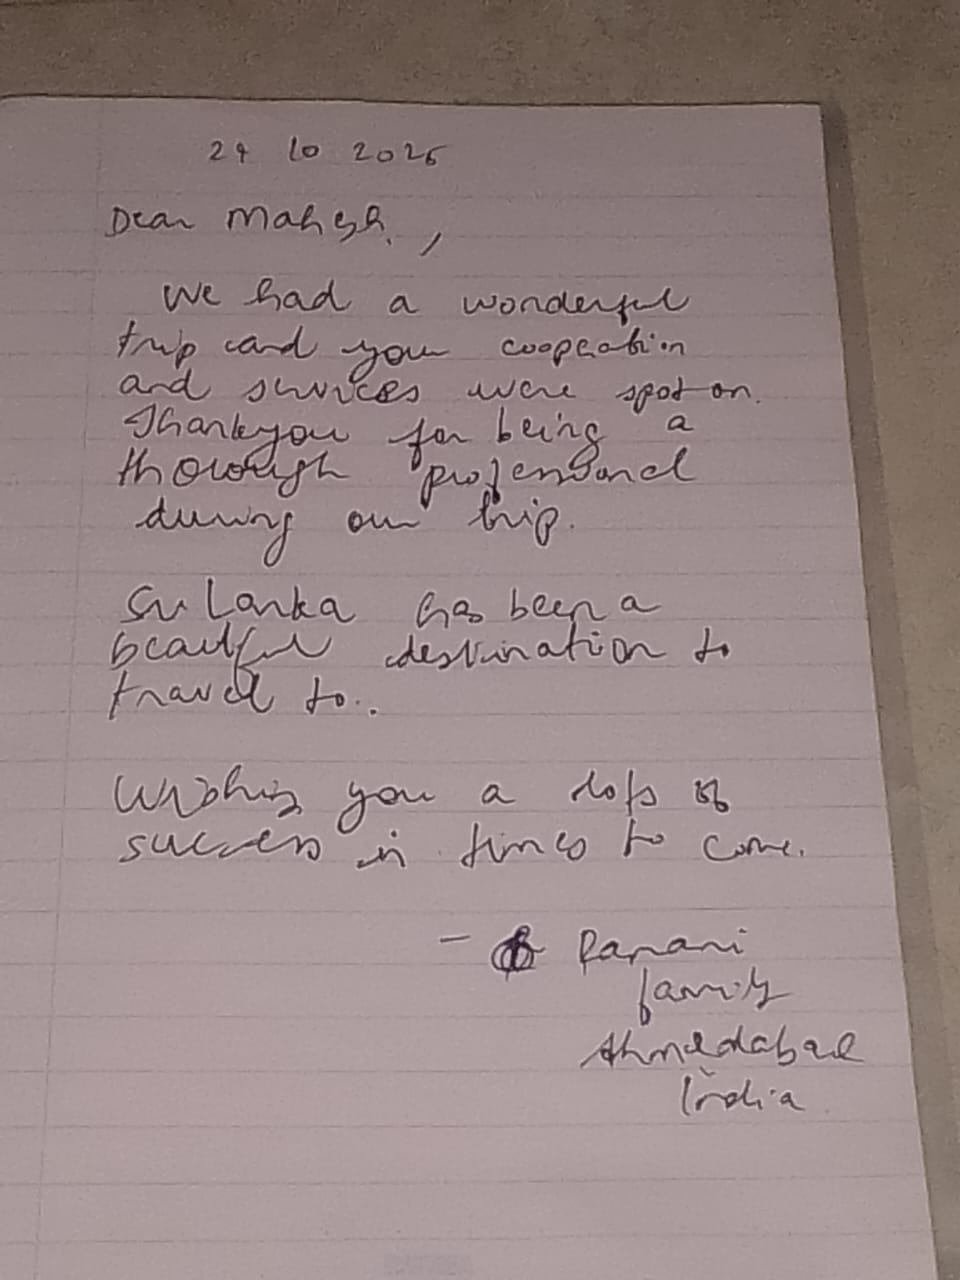 24 10 2025
Dear Mahesh,
We had a wonderful
trip and your cooperation
and services were spot on.
Thankyou for being a
thorough professional
during our trip.
Sri Lanka has been a
beautiful destination to
travel to..
Wishing you a lots of
success in times to come.
-
family
Ahmedabad
India